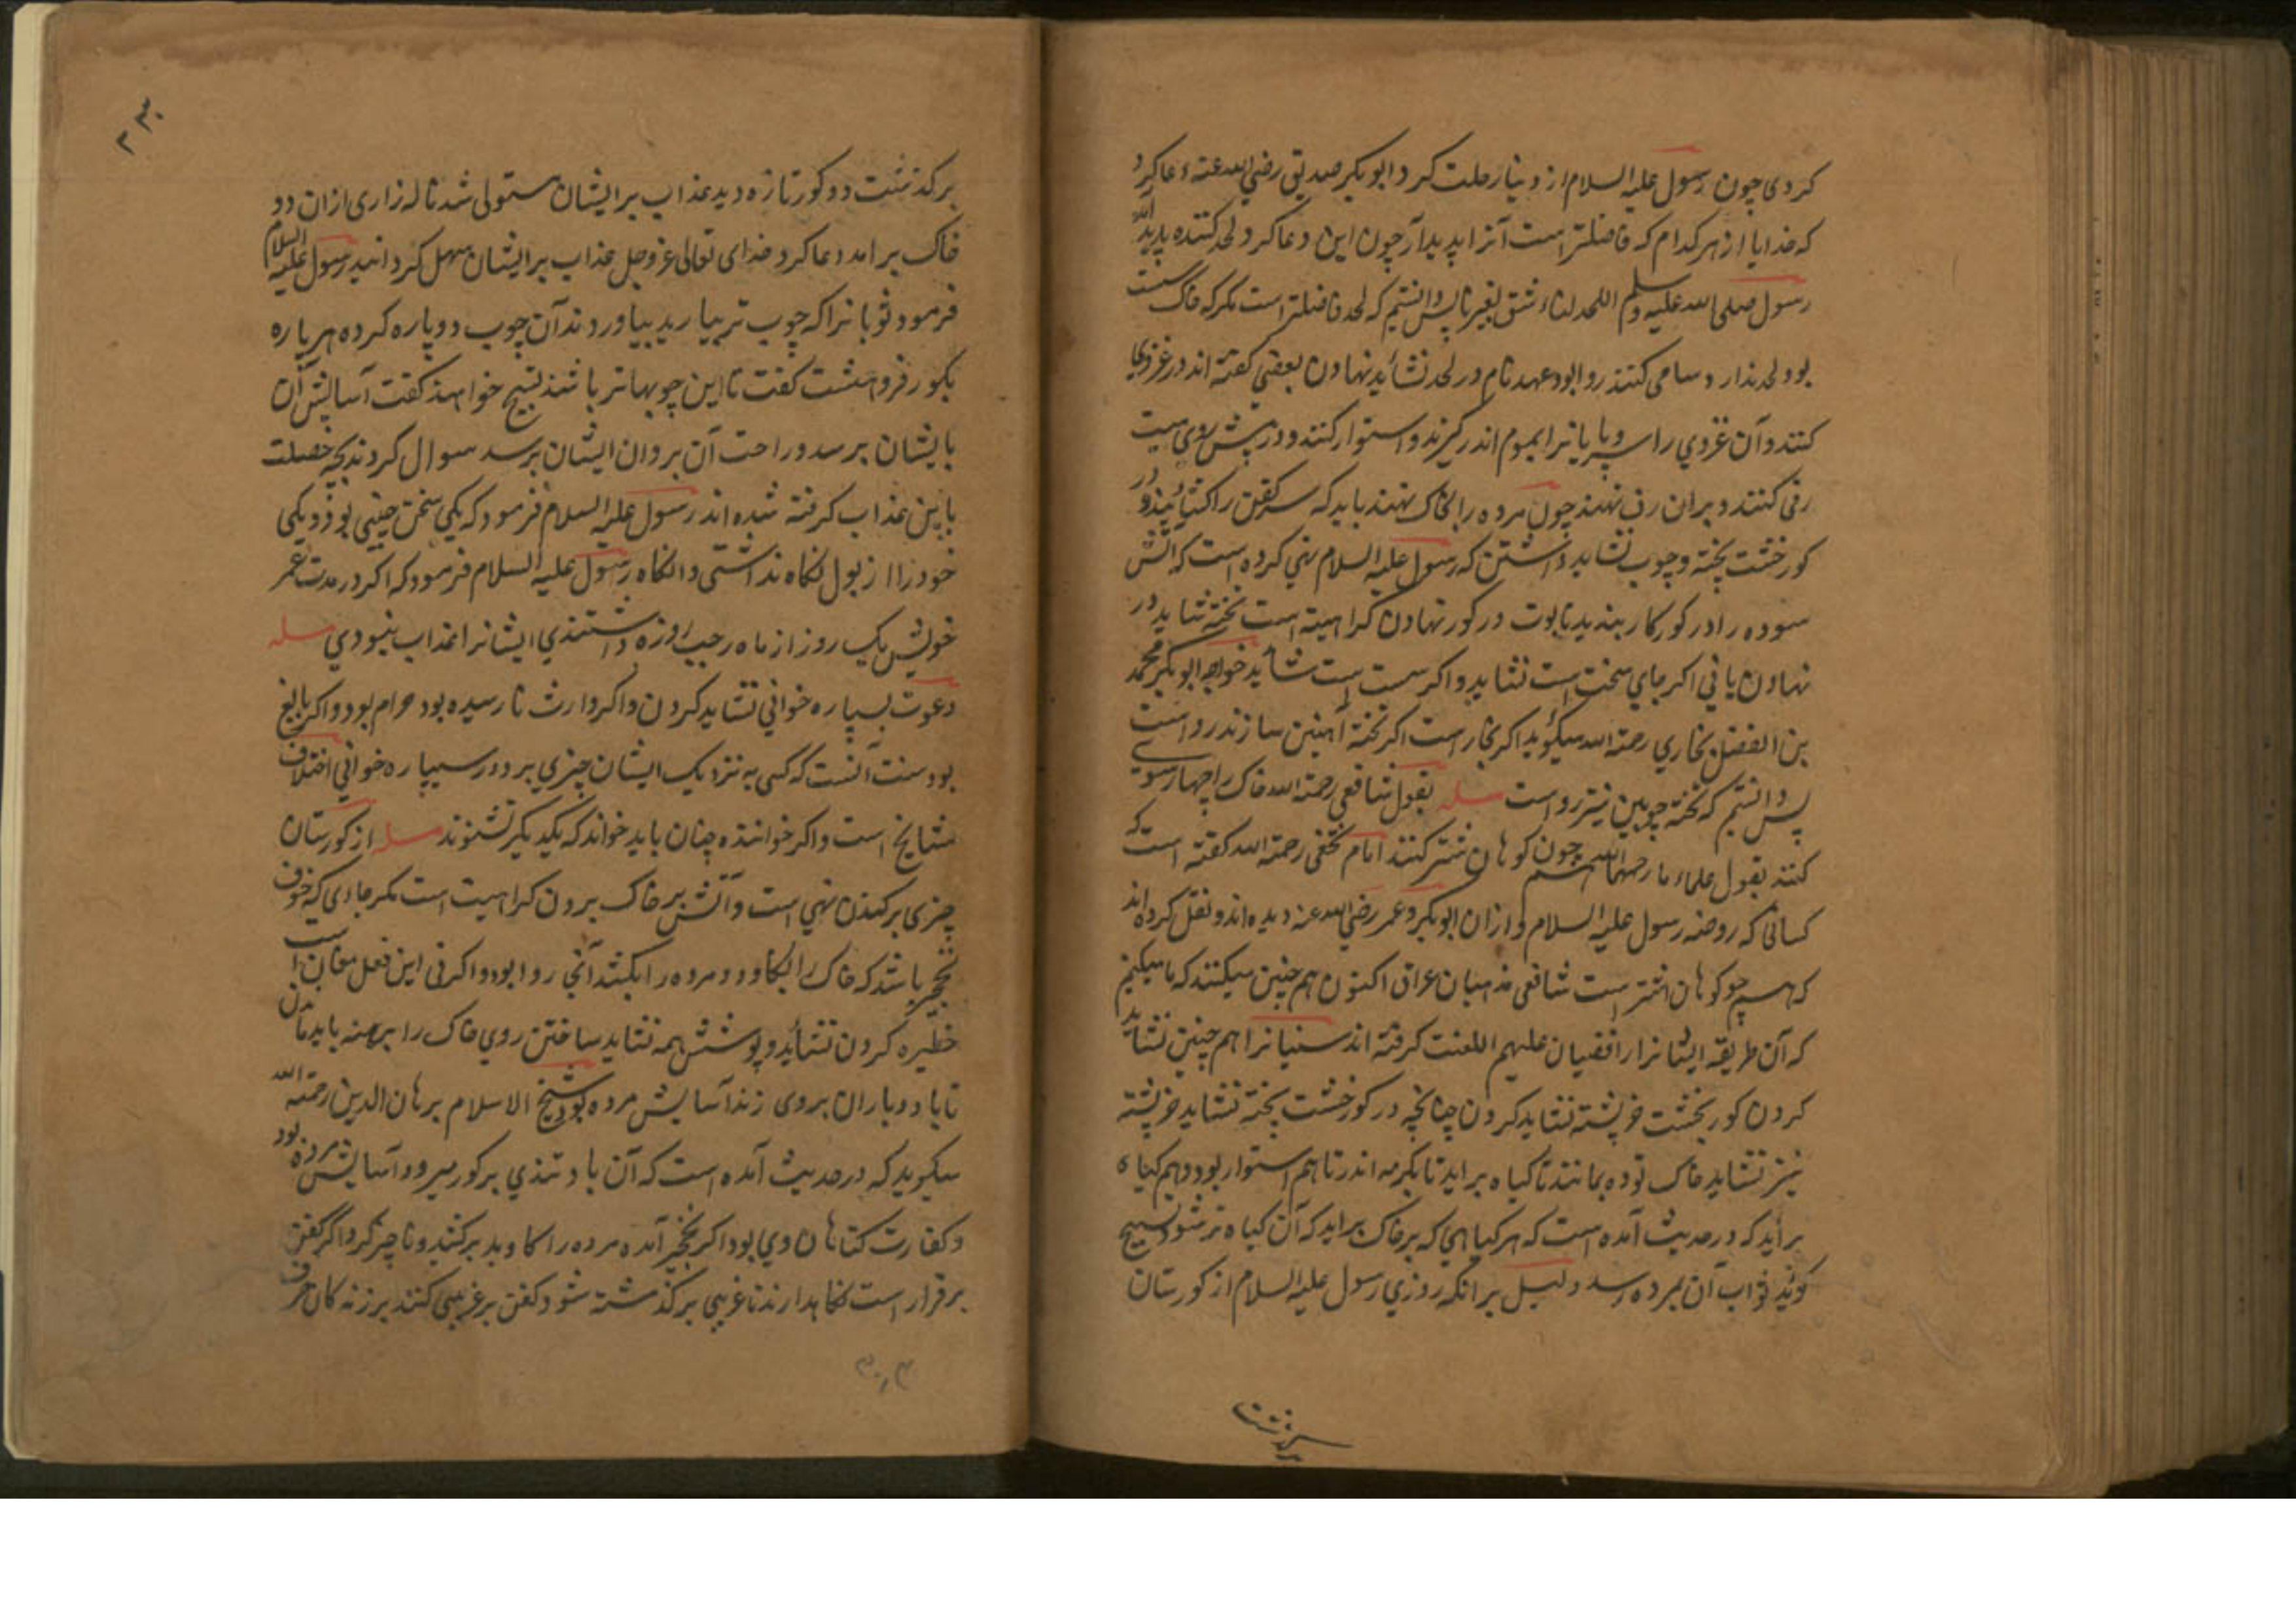 کردی چون رسول علیه السلام از دنیا رحلت کرد ابوبکر صدیق رضی الله عنه دعا کرد
که خدایا از هر کدام که فاضلتر است آنرا پدید آر چون این دعا کرد لحد کننده پدید آمد
رسول صلی الله علیه وسلم اللحد لنا و شق لغیرنا پس دانستیم که لحد فاضلتر است مگر که خاک سست
بود لحد ندارد سامی کنند روا بود عهدنام در لحد نشاید نهادن بعضی گفته اند در غزوی
کنند و آن غزوی را سر و پایانرا بموم اندر گیرند و استوار کنند و در پیش روی میت
رفی کنند و بران رف نهند چون مرده را بخاک نهند باید که سر کفن را کشایند و در
کور خشت پخته و چوب نشاید داشتن که رسول علیه السلام نهی کرده است که آتش
سوده را در کور کار بندید تابوت در کور نهادن کراهیة است تخته نشاید در
نهادن یا نی اکر جای سخت است نشاید و اکر سست است شاید خواجه ابوبکر محمد
بن الفضل بخاری رحمة الله میکوید اکر بخار است اکر تخته آهنین سازند رواست
پس دانستیم که تخته چوبین نیز رواست مسله بقول شافعی رحمة الله خاک را چهار سوی
کنند بقول علماء ما رحمهم الله چون کوهان شتر کنند امام نخعی رحمة الله کفته است که
کسانی که روضه رسول علیه السلام و ازان ابوبکر و عمر رضی الله عنه دیده اند و نقل کرده اند
که همچو کوهان اشتر است شافعی مذهبان عراق اکنون هم چنین میکنند که ما میکنیم
که آن طریقه ایشانرا رافضیان علیهم اللعنت کرفته اند سنیانرا هم چنین نشاید
کردن کور بخشت خرپشته نشاید کردن چنانچه در کور خشت پخته نشاید خرپشته
نیز نشاید خاک توده بمانند تا کیاه براید تا بکرمه اندر تا هم استوار بود و هم کیاه
براید که در حدیث آمده است که هر کیاهی که بر خاک براید که آن کیاه تر شود تسبیح
کوید ثواب آن بمرده رسد دلیل برانکه روزی رسول علیه السلام از کورستان
برکذشت دو کور تازه دید عذاب بر ایشان مستولی شد ناله زاری ازان دو
خاک برامد دعا کرد خدای تعالی عزوجل عذاب بر ایشان سهل کردانید رسول علیه السلام
فرمود ثوبانرا که چوب تر بیارید بیاوردند آن چوب دوپاره کرده هر پاره
بکور فروهشت کفت تا این چوبها تر باشند تسبیح خواهند کفت آسایش آن
بایشان برسد و راحت آن بروان ایشان برسد سوال کردند بچه خصلت
باین عذاب کرفته شده اند رسول علیه السلام فرمود که یکی سخن چینی بود و یکی
خود را از بول نکاه نداشتی و انکاه رسول علیه السلام فرمود که اکر در مدت عمر
خویش یک روز از ماه رجب روزه داشتندی ایشانرا عذاب نبودی مسله
دعوت بسیپاره خوانی نشاید کردن و اکر وارث نارسیده بود حرام بود و اکر بالغ
بود سنت آنست که کسی به نزدیک ایشان چیزی برد و در سیپاره خوانی اختلاف
مشایخ است و اکر خواننده چنان باید خواند که یکدیکر نشنوند مسله از کورستان
چیزی برکندن نهی است و آتش بر خاک بردن کراهیت است مکر جادی که خوف
نخجیر باشد که خاک را بکاود و مرده را بکشد آنجا روا بود و اکر نی این فعل مغان است
حظیره کردن نشاید و پوشش همه نشاید ساختن روی خاک را برهنه باید ماندن
تا باد و باران بروی زند آسایش مرده بود شیخ الاسلام برهان الدین رحمة الله
میکوید که در حدیث آمده است که آن باد تندی بر کور میرود آسایش مرده بود
و کفارت کناهان وی بود اکر نخجیر آمده مرده را کاوید برکنید و ناچیز کرد اکر کفن
برقرار است نکاهدارند تا غریبی برکذشته شود کفن بر غریبی کنند بر زنه کان صرف
برکذشت